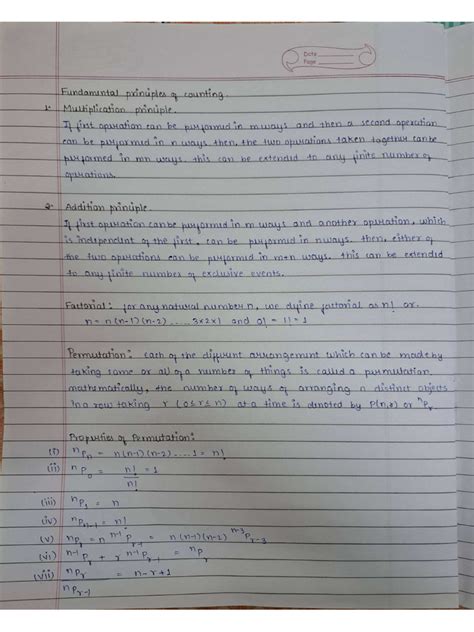 Date
Page
Fundamental principles of counting.
1. Multiplication principle.
If first operation can be performed in m ways and then a second operation
can be performed in n ways. then, the two operations taken together can be
performed in mn ways. this can be extended to any finite number of
operations.
2. Addition principle.
If first operation can be performed in m ways and another operation, which
is independent of the first, can be performed in n ways. then, either of
the two operations can be performed in m+n ways. this can be extended
to any finite number of exclusive events.
Factorial: for any natural number n, we define factorial as n! or
n = n(n-1)(n-2) .... 3×2×1 and 0! = 1! = 1
Permutation: each of the different arrangement which can be made by
taking some or all of a number of things is called a permutation.
mathematically, the number of ways of arranging n distinct objects
in a row taking r (0≤r≤n) at a time is denoted by P(n,r) or ⁿPᵣ.
Properties of Permutation:
(i) ⁿPₙ = n(n-1)(n-2) .... 1 = n!
(ii) ⁿP₀ = n!/n! = 1
(iii) ⁿP₁ = n
(iv) ⁿPₙ₋₁ = n!
(v) ⁿPᵣ = n ⁿ⁻¹Pᵣ₋₁ = n(n-1)(n-2) ⁿ⁻³Pᵣ₋₃
(vi) ⁿ⁻¹Pᵣ + r ⁿ⁻¹Pᵣ₋₁ = ⁿPᵣ
(vii) ⁿPᵣ/ⁿPᵣ₋₁ = n-r+1